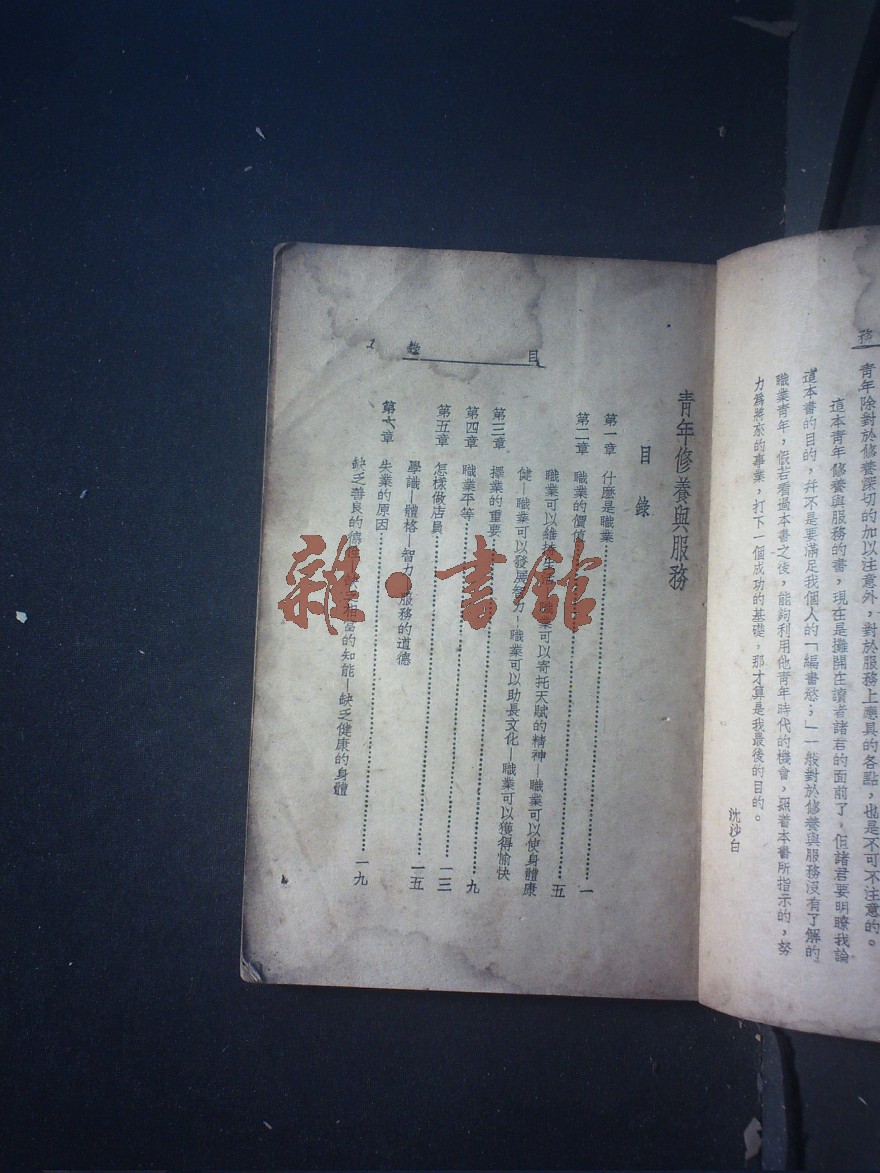 務
青年除對於修養深切的加以注意外，對於服務上應具的各點，也是不可不注意的。
這本青年修養與服務的書，現在是攤開在讀者諸君的面前了，但諸君要明瞭我論
這本書的目的，幷不是要滿足我個人的「編書慾；」一般對於修養與服務沒有了解的
職業青年，假若看過本書之後，能夠利用他青年時代的機會，照着本書所指示的，努
力爲將來的事業，打下一個成功的基礎，那才算是我最後的目的。
沈沙白
目 錄 1
青年修養與服務
目 錄
第一章 什麼是職業 一
第二章 職業的價值 五
職業可以維持生活 職業可以寄托天賦的精神—職業可以使身體康
健—職業可以發展智力—職業可以助長文化—職業可以獲得愉快
第三章 擇業的重要 九
第四章 職業平等 一三
第五章 怎樣做店員 一五
學識—體格—智力 服務的道德
第六章 失業的原因 一九
缺乏善良的德性 缺乏相當的知能—缺乏健康的身體
雜·書館